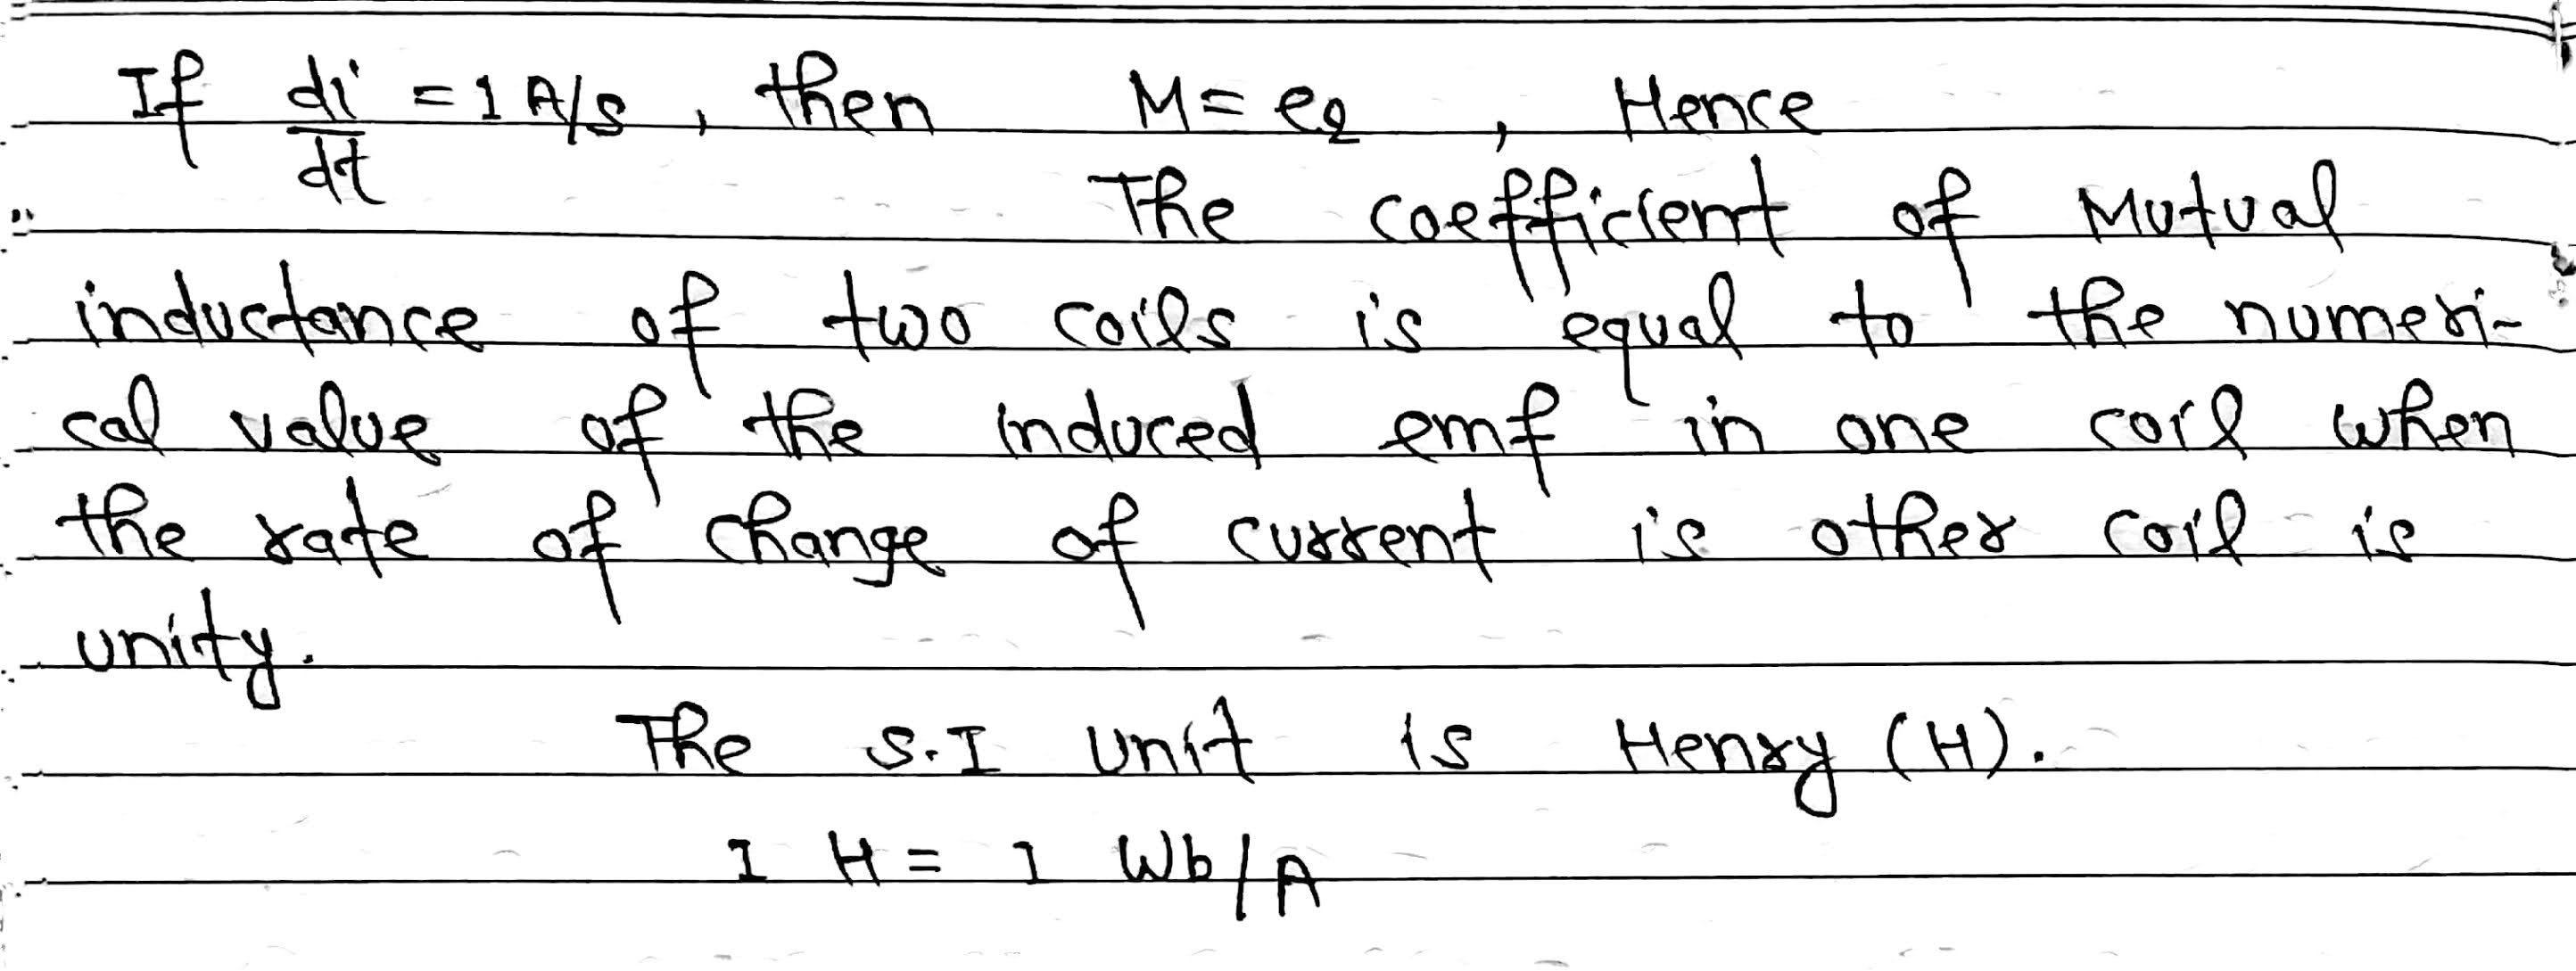 If di/dt = 1 A/s , then M = e2 , Hence
The coefficient of Mutual
inductance of two coils is equal to the numeri-
cal value of the induced emf in one coil when
the rate of change of current is other coil is
unity.
The S.I unit is Henry (H).
1 H = 1 Wb/A